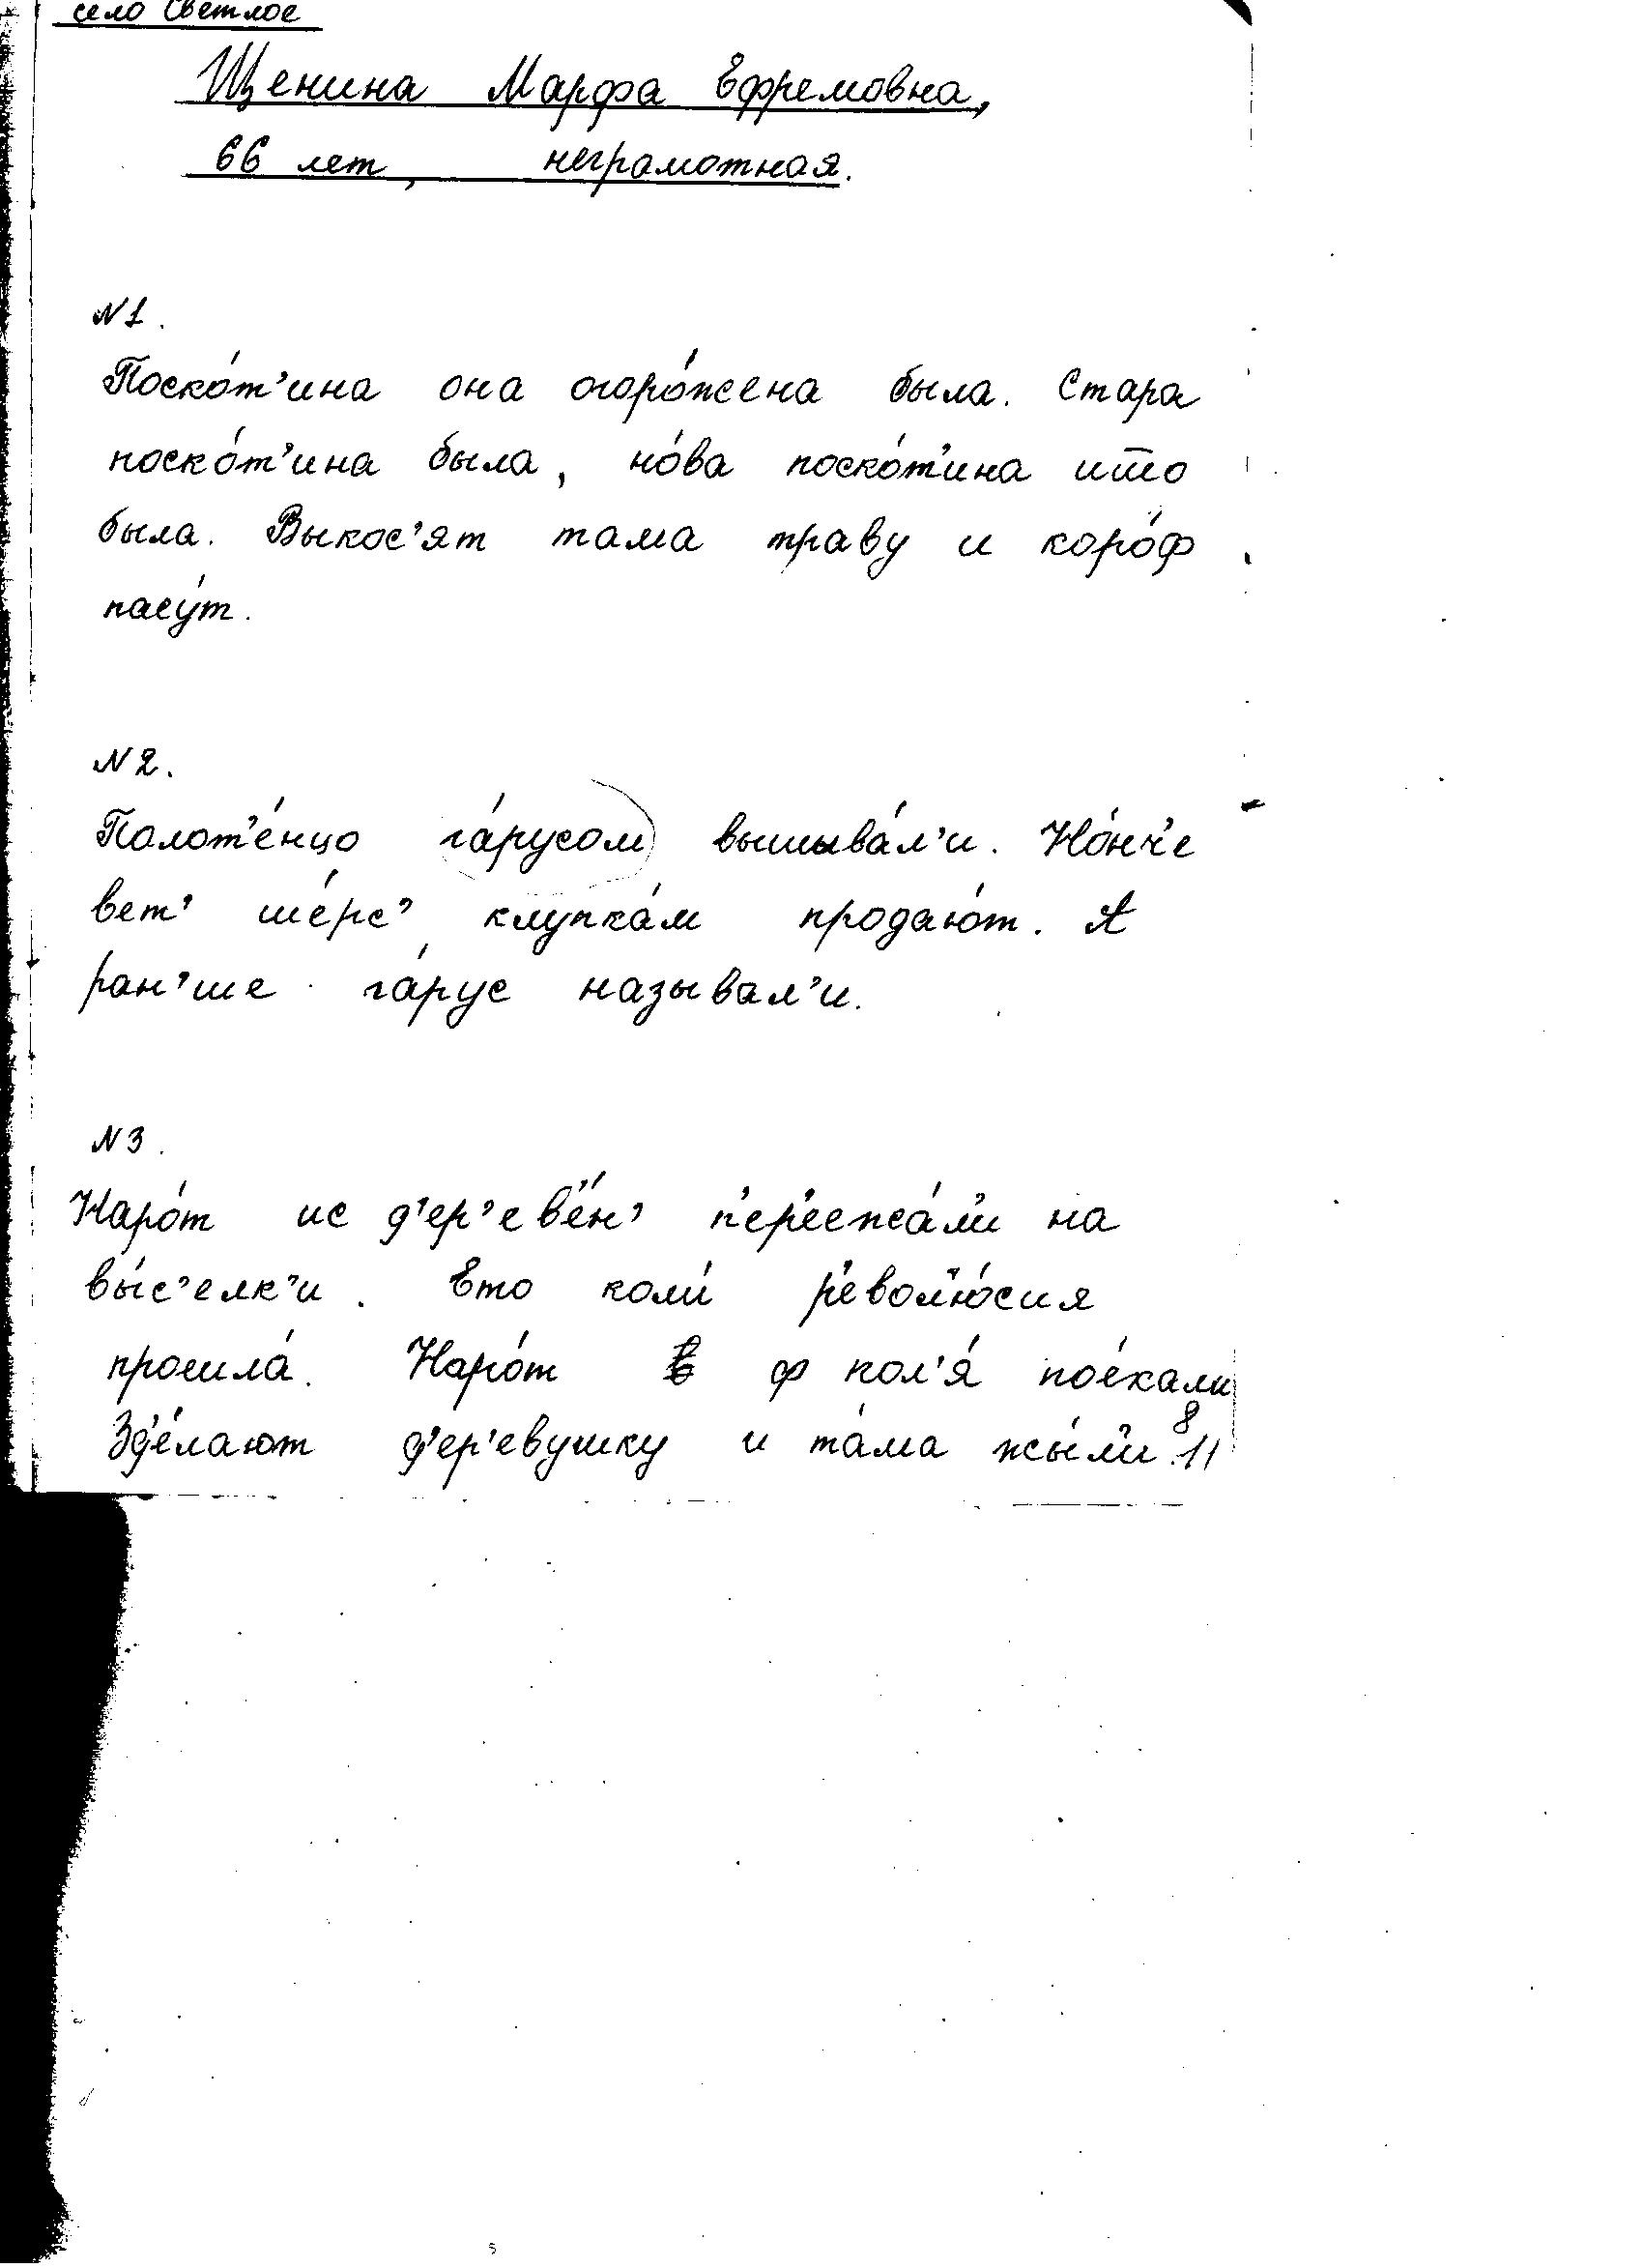 село Светлое
Щенина Марфа Ефремовна,
66 лет, неграмотная.
№1.
Поско́т'ина она огоро́жена была. Стара
поско́т'ина была, но́ва поско́т'ина што
была. Выкос'ят тама траву и коро́ф
пасу́т.
№2.
Полот'е́нцо га́русом вышыва́л'и. Но́нч'е
вет' ше́рс' клупка́м продаю́т. А
ран'ше га́рус называл'и.
№3.
Наро́т ис д'ер'ев'е́н' п'ер'еежа́л'и на
вы́с'елк'и. Ето коли́ р'евол'ю́сия
прошла́. Наро́т ф пол'я́ пое́хали
Зд'е́лают д'ер'евушку и та́ма жы́л'и.
8
11